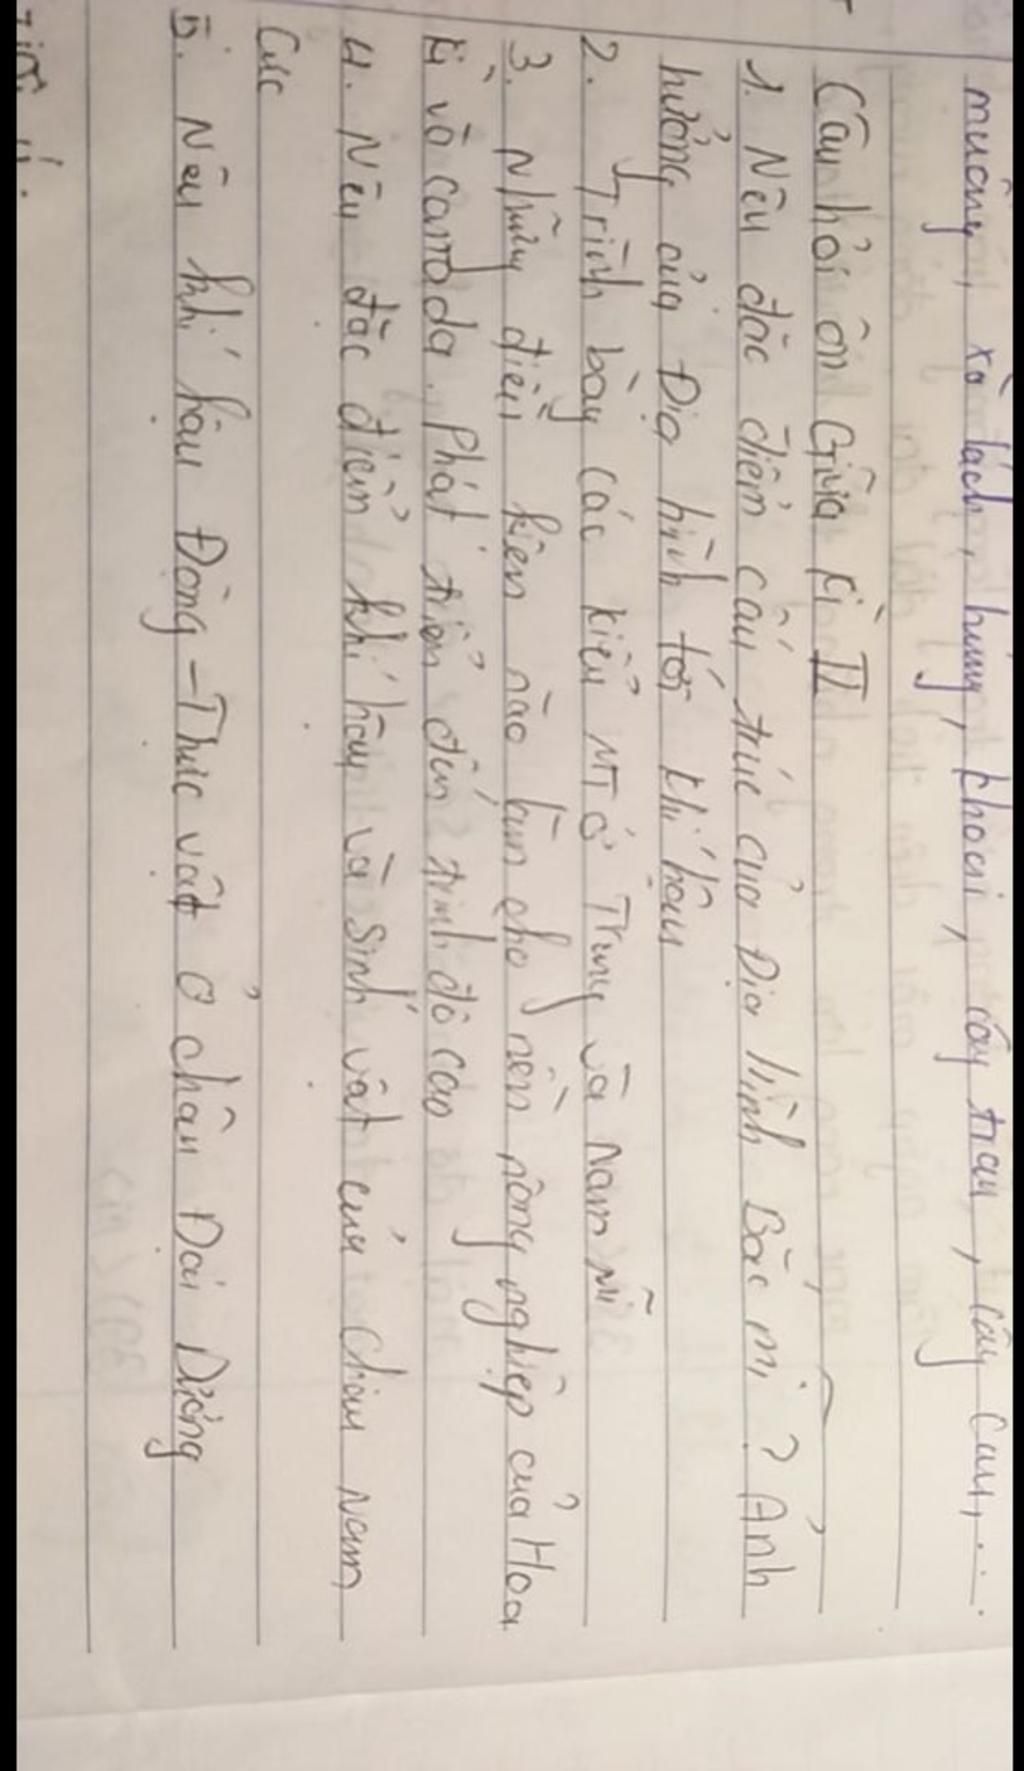 muống, xà lách, húng, khoai, cây trau, cây Cau,...
Câu hỏi ôn Giữa kì II
1. Nêu đặc điểm cấu trúc của Địa hình Bắc mĩ ? Ảnh
hưởng của Địa hình tới khí hậu
2. Trình bày các kiểu MT ở Trung và Nam Mĩ
3. Những điều kiện nào làm cho nền nông nghiệp của Hoa
kì và canada. Phát triển đến trình độ cao
4. Nêu đặc điểm khí hậu và Sinh vật của Châu Nam
Cực
5. Nêu khí hậu Động - Thực vật ở châu Đại Dương